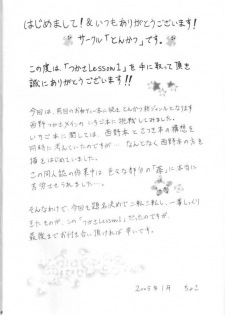 はじめまして!&いつもありがとうございます!
サークル「とんかつ」です。
この度は、「つかさLesson1」を手に取って頂き
誠にありがとうございます!!
今回は、
西野つかさメインの いちご本に挑戦してみました。
いちご本に関しては、西野本と さつき本の構想を
同時に考えていたのですが… なんとなく西野本の方を
描きはじめていました。
この同人誌の作業中は 色々な部分の「茶」に本当に
苦労させられました…。
そんなわけで、今回も題名決めで二転三転し、一番しっくり
きたものが、この「つかさLesson1」だったのですが、
最後までお付き合い頂ければ幸いです。
2005年 1月 ちょこ